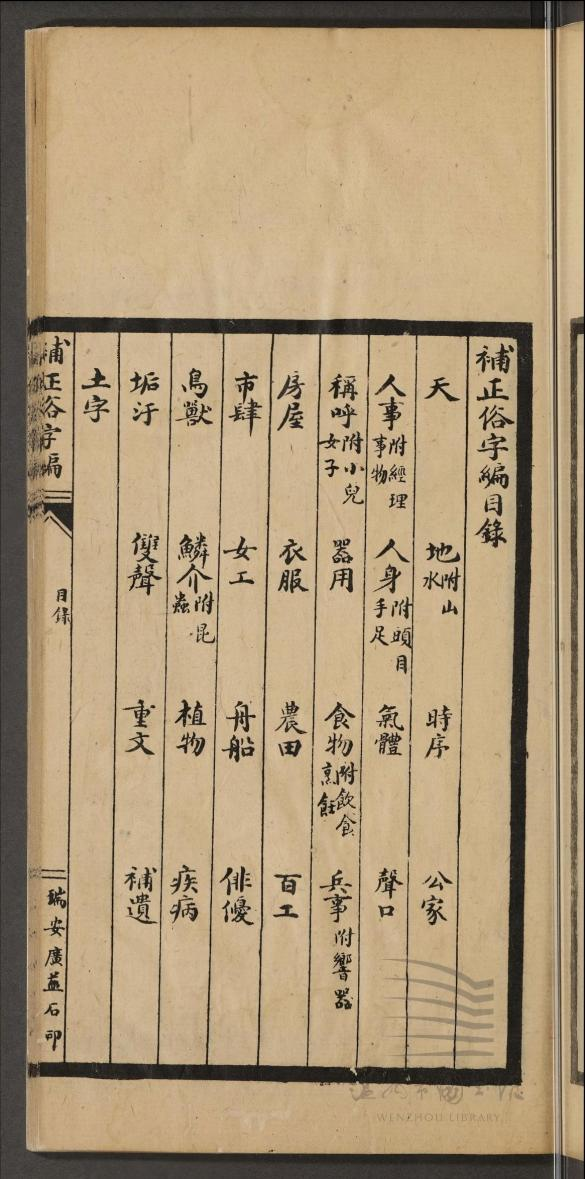 補正俗字編目錄
天 地附山水 時序 公家
人事附經理事物 人身附頭目手足 氣體 聲口
稱呼附小兒女子 器用 食物附飲食烹飪 兵事附響器
房屋 衣服 農田 百工
市肆 女工 舟船 俳優
鳥獸 鱗介附昆蟲 植物 疾病
垢汙 雙聲 重文 補遺
土字
補正俗字編
目錄
瑞安廣益石印
WENZHOU LIBRARY